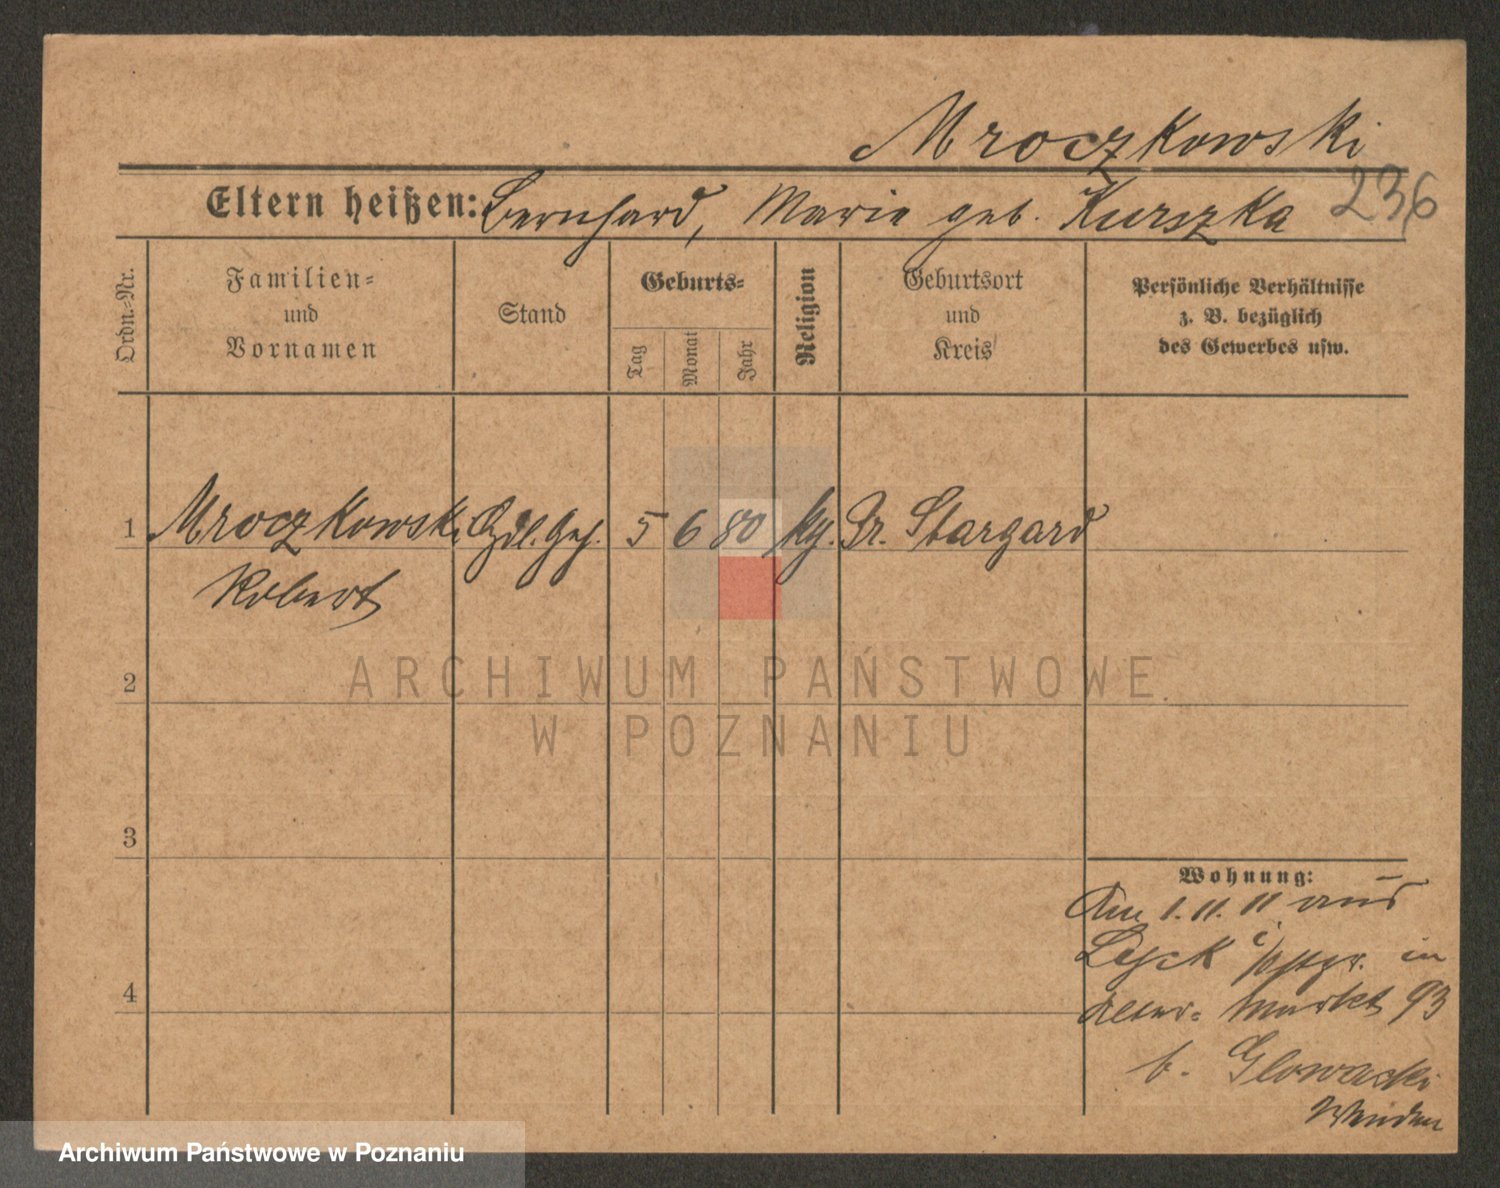 Mroczkowski
Eltern heißen: Bernhard, Marie geb. Kurszka
236
Ordn.-Nr.
Familien-
und
Vornamen
Stand
Geburts-
Tag
Monat
Jahr
Religion
Geburtsort
und
Kreis
Persönliche Verhältnisse
z. B. bezüglich
des Gewerbes usw.
1 Mroczkowski 5 6 80 Pr. Stargard
Robert
2
3
4
Wohnung:
1. 11. 11 aus
in
Alter- Markt 93
b. Glowacki
Wenden
ARCHIWUM PAŃSTWOWE
W POZNANIU
Archiwum Państwowe w Poznaniu